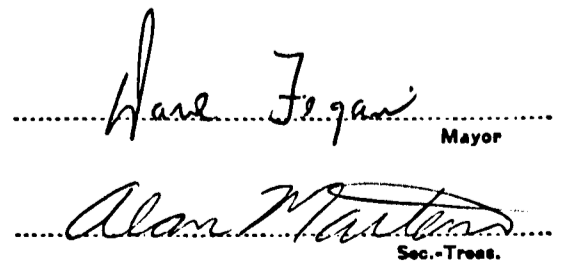 Dave Fegan
Mayor
Alan Martens
Sec.-Treas.